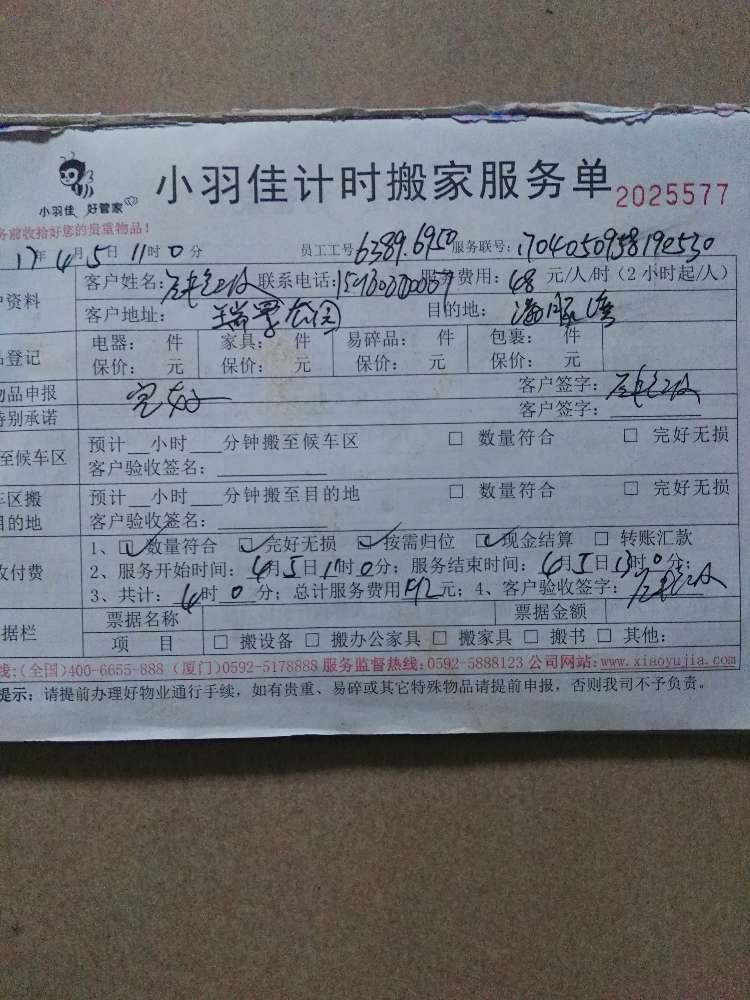 小羽佳计时搬家服务单 2025577
小羽佳 好管家
务前收拾好您的贵重物品！
17年4月5日11时0分 员工工号6389.6950 服务联号：
户资料 客户姓名： 联系电话： 服务费用：48元/人/时（2小时起/人）
客户地址：瑞景 目的地：
品登记 电器： 件 家具： 件 易碎品： 件 包裹： 件
保价： 元 保价： 元 保价： 元 保价： 元
物品申报 完好 客户签字：
特别承诺 客户签字：
至候车区 预计__小时___分钟搬至候车区 □ 数量符合 □ 完好无损
客户验收签名：
车区搬 预计__小时___分钟搬至目的地 □ 数量符合 □ 完好无损
目的地 客户验收签名：
收付费 1、☑数量符合 ☑完好无损 ☑按需归位 ☑现金结算 □ 转账汇款
2、服务开始时间：4月5日11时0分；服务结束时间：4月5日13时0分；
3、共计：4时0分；总计服务费用192元；4、客户验收签字：
据栏 票据名称 票据金额
项 目 □ 搬设备 □ 搬办公家具 □ 搬家具 □ 搬书 □ 其他：
线：(全国)400-6655-888 (厦门)0592-5178888 服务监督热线:0592-5888123 公司网站:www.xiaoyujia.com
提示：请提前办理好物业通行手续，如有贵重、易碎或其它特殊物品请提前申报，否则我司不予负责。